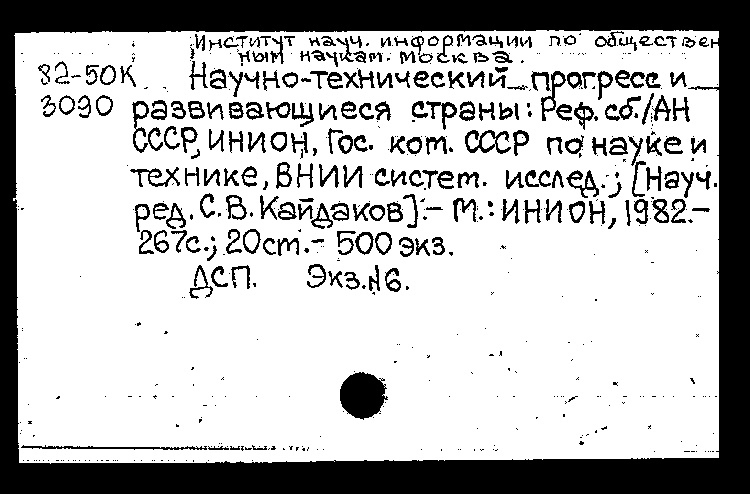 Институт науч. информации по обществен
ным наукам. Москва.
82-50К Научно-технический прогресс и
3090 развивающиеся страны: Реф. сб./АН
СССР, ИНИОН, Гос. ком. СССР по науке и
технике, ВНИИ систем. исслед.; [Науч.
ред. С. В. Кайдаков].- М.: ИНИОН, 1982.-
267с.; 20см.- 500 экз.
ДСП. Экз. №6.